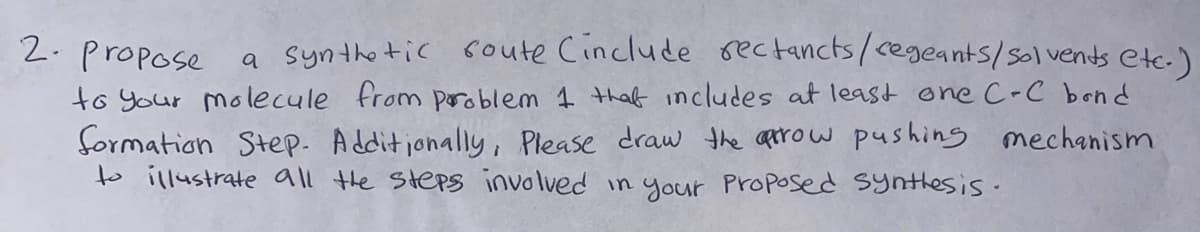 2. Propose a synthetic route (include rectancts/regeants/solvents etc.)
to your molecule from problem 1 that includes at least one C-C bond
formation step. Additionally, Please draw the arrow pushing mechanism
to illustrate all the steps involved in your proposed synthesis.